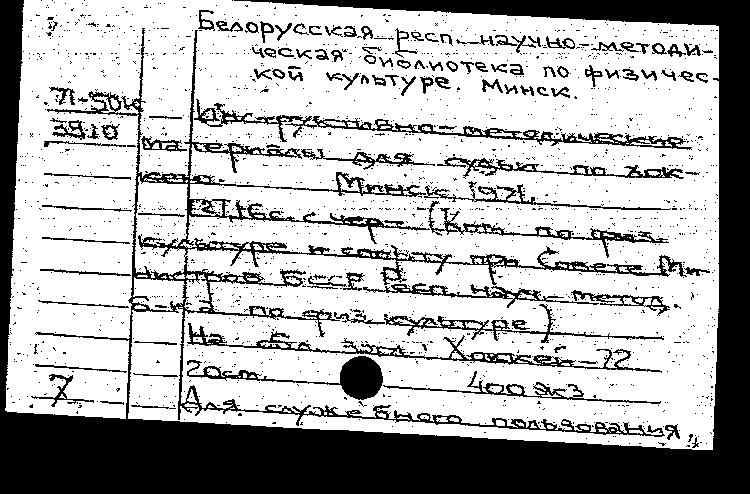 Белорусская респ. научно-методи-
ческая библиотека по физичес-
кой культуре. Минск.
Л-50к
3910
Инструктивно-методические
материалы для судьи по хок-
кею. Минск, 1971.
[2], 16 с. с черт. (Ком. по физ.
культуре и спорту при Совете Ми-
нистров БССР. Респ. науч.-метод.
б-ка по физ. культуре)
На обл. загл.: Хоккей-72
20 см. 400 экз.
7
Для служебного пользования.